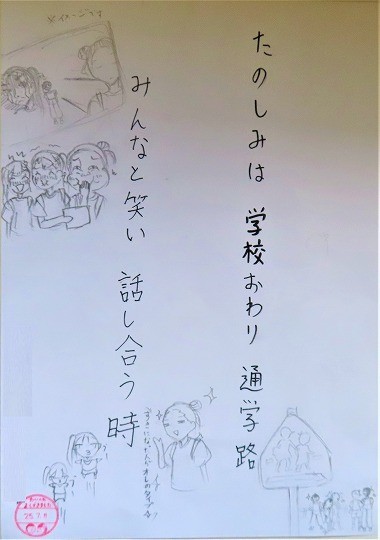 たのしみは 学校おわり 通学路
みんなと笑い 話し合う時
※イメージです